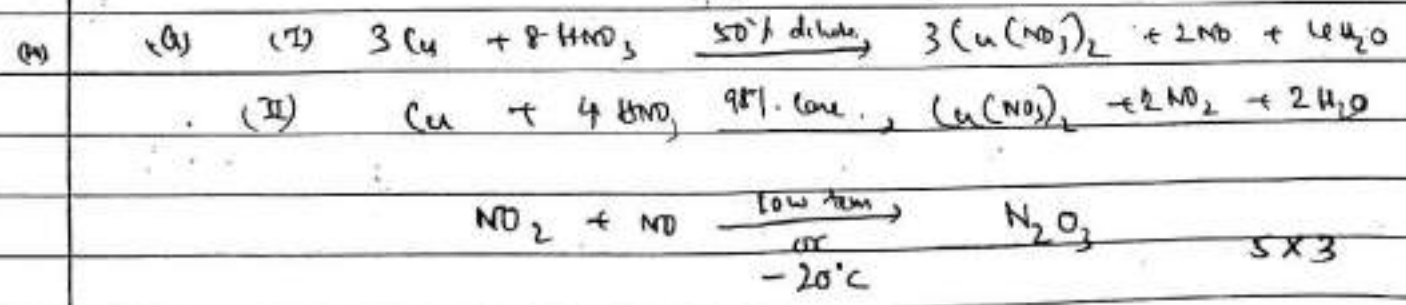 (a) (I) 3 Cu + 8 HNO3 50% dilute → 3 Cu(NO3)2 + 2NO + 4H2O
(II) Cu + 4 HNO3 98% conc. → Cu(NO3)2 + 2 NO2 + 2 H2O
NO2 + NO low tem → N2O3
or
-20°C
5 X 3